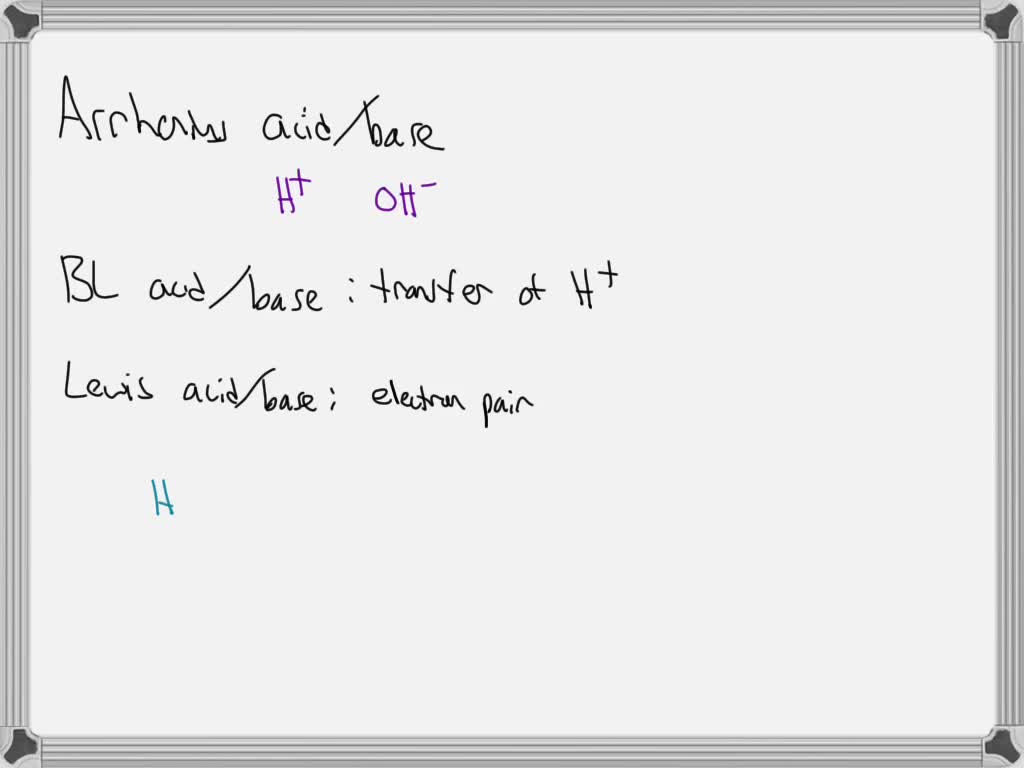 Arrhenius acid/base
H⁺ OH⁻
BL acid/base : transfer of H⁺
Lewis acid/base : electron pair
H